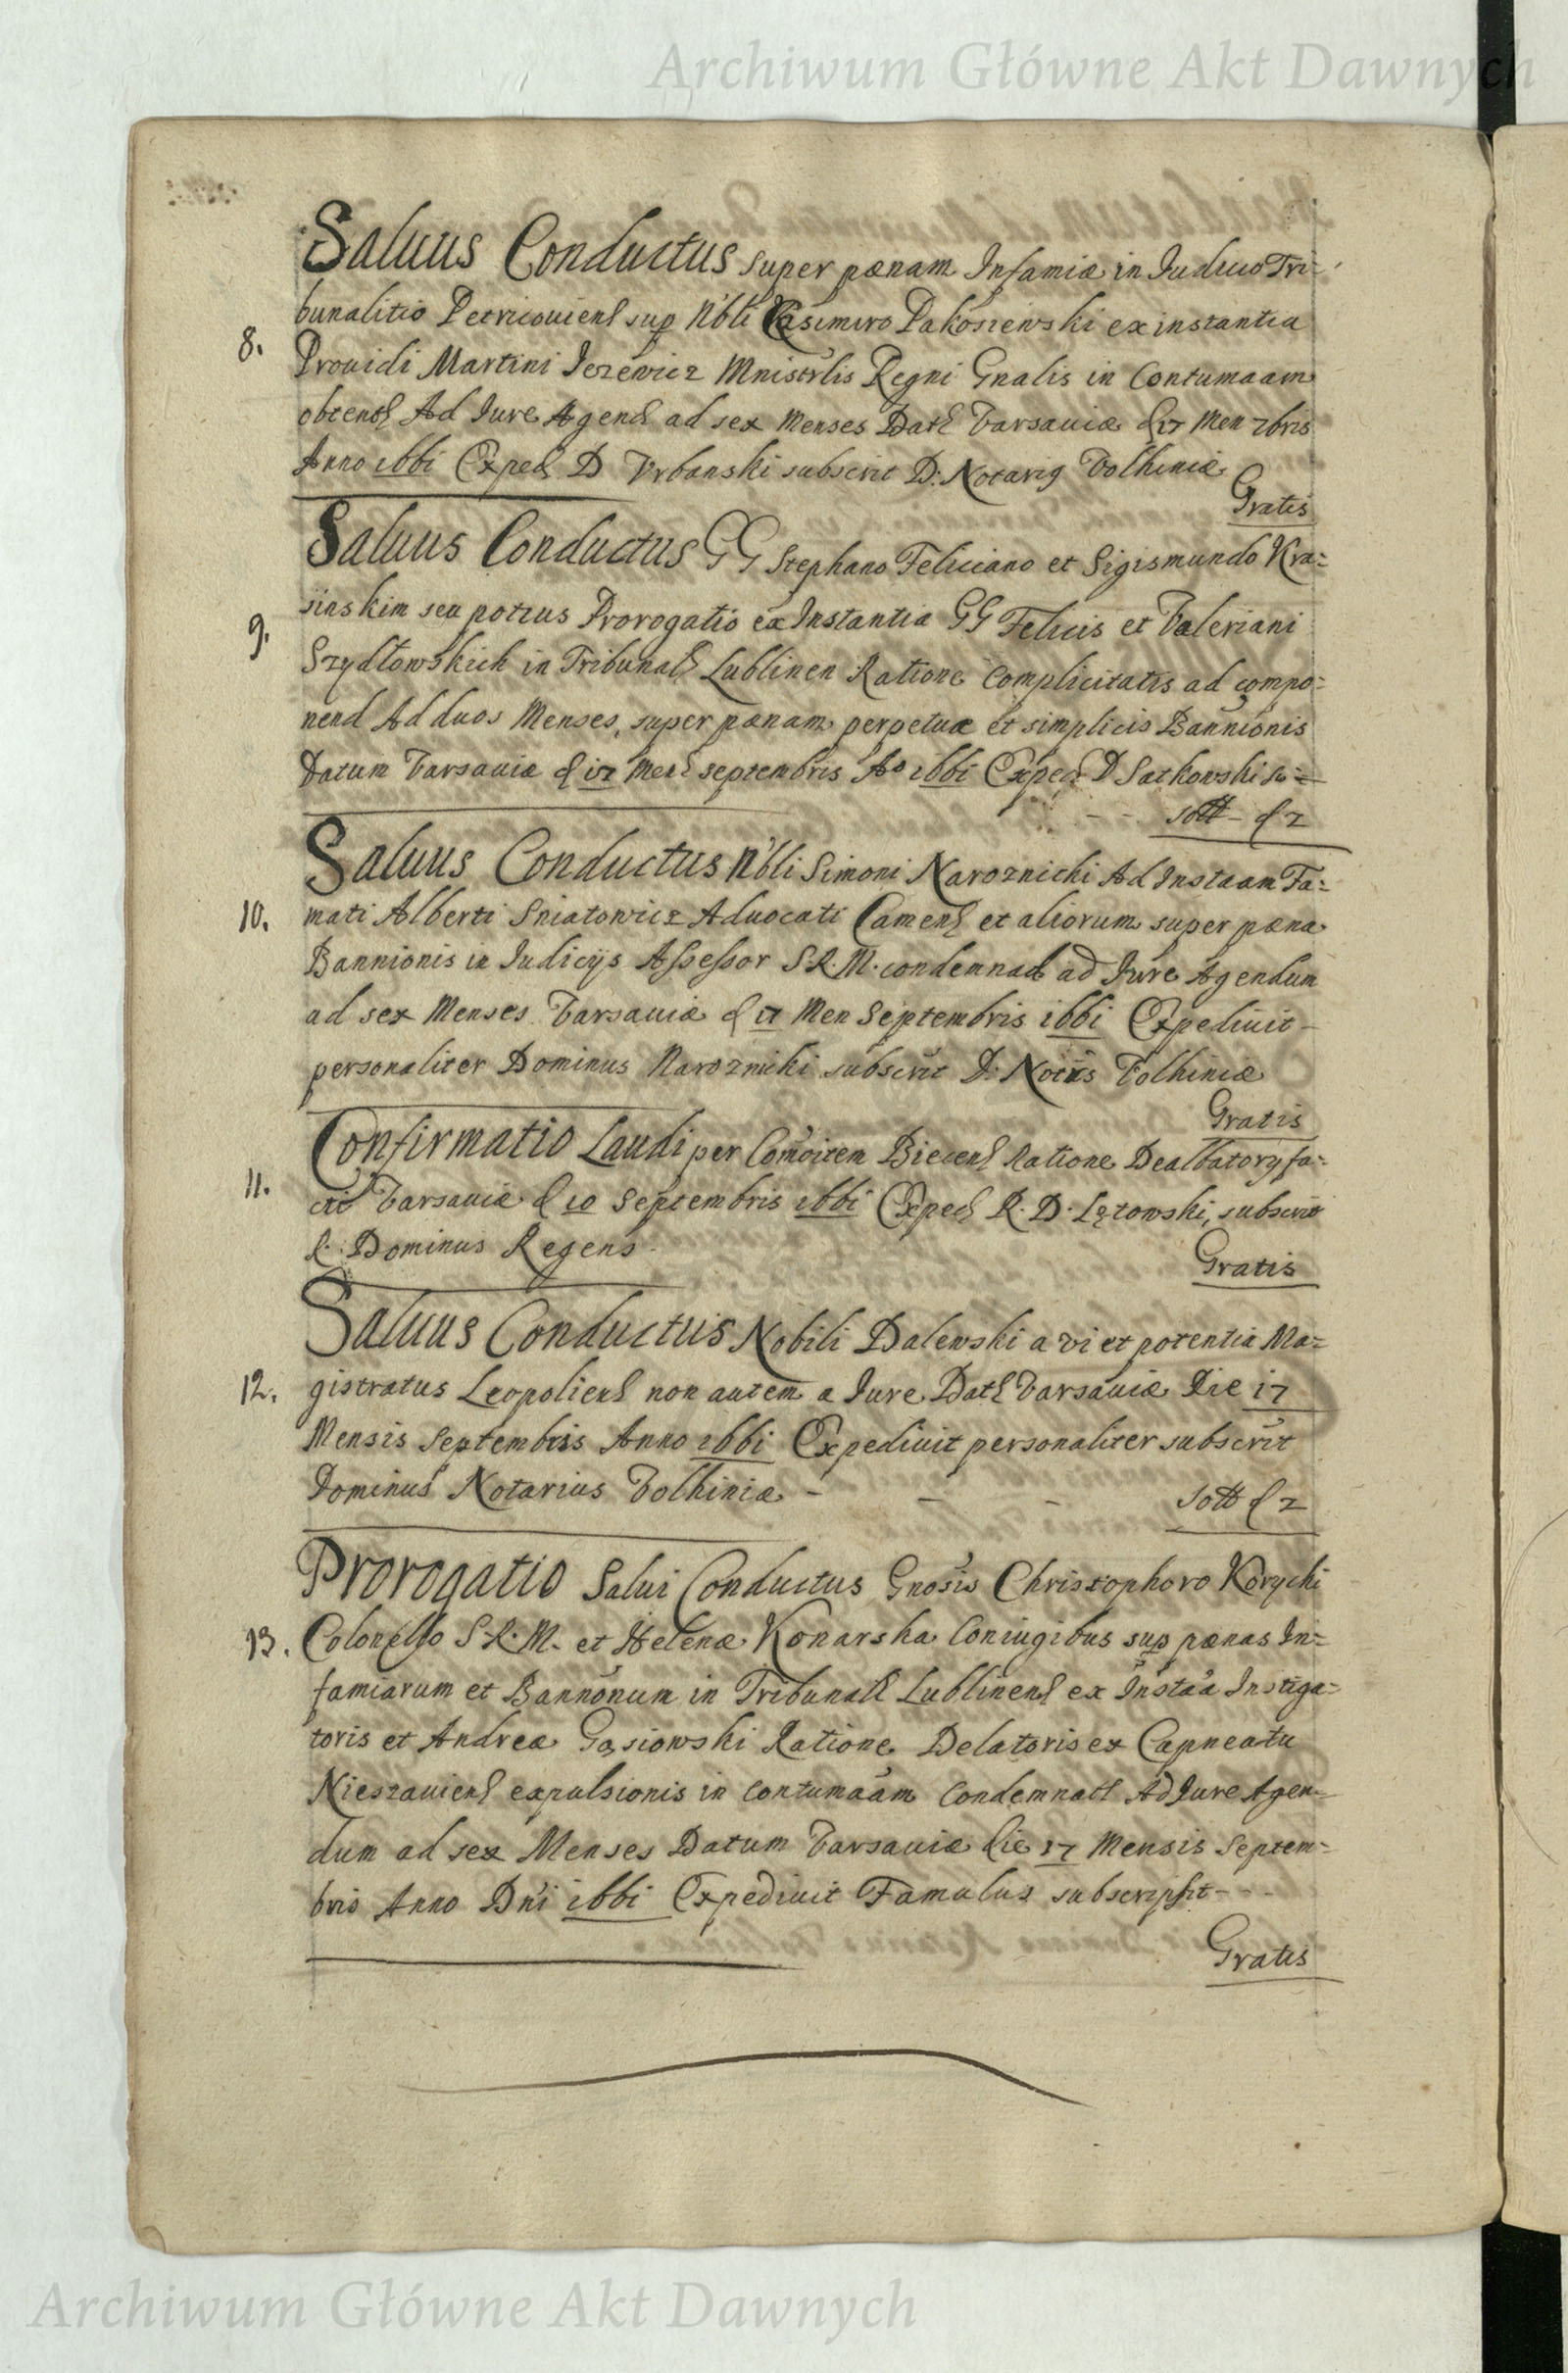 Archiwum Główne Akt Dawnych
Saluus Conductus super pænam Infamiæ in Iudicio Tri=
bunalitio Petricouien sup Nbli Casimiro Pakoszewski ex instantia
8. Prouidi Martini Jezewicz Mnistrlis Regni Gnalis in Contumaam
obtent Ad Iure Agend ad sex Menses Dat Varsauiæ d 17 Men 7bris
Anno 1661 Exped D Vrbanski subscrit D: Notari9 Volhiniæ
Gratis
Saluus Conductus GG Stephano Feliciano et Sigismundo Kra=
sinskim seu potius Prorogatio ex Instantia GG Felicis et Valeriani
9. Szydłowskich in Tribunal Lublinen Ratione Complicitatis ad compo=
nend Ad duos Menses, super pænam perpetuæ et simplicis Bannionis
Datum Varsauiæ d 17 Men septembris Ao 1661 Exped D Satkowski
sott d 2
Saluus Conductus Nbli Simoni Naroznicki Ad Instaam Fa=
10. mati Alberti Sniatowicz Aduocati Camen et aliorum super pæna
Bannionis in Iudicijs Assessor S.R.M. condemnat ad Iure Agendum
ad sex Menses Varsauiæ d 17 Men Septembris 1661 Expediuit
personaliter Dominus Naroznicki subscrit D: Notrs Volhiniæ
Gratis
Confirmatio Laudi per Comoitem Biecen Ratione Dealbatory fa=
11. cti Varsauiæ d 10 Septembris 1661 Exped R. D. Lętowski, subscrit
R. Dominus Regens
Gratis
Saluus Conductus Nobili Dalewski a vi et potentia Ma=
12. gistratus Leopolien non autem a Iure Dat Varsauiæ Die 17
Mensis Septembris Anno 1661 Expediuit personaliter subscrit
Dominus Notarius Volhiniæ - - -
sott d 2
Prorogatio Salui Conductus Gnosis Christophoro Korycki
13. Colonello S.R.M. et Helenæ Konarska Coniugibus sup pænas In=
famiarum et Bannonum in Tribunali Lublinen ex Instaa Instiga=
toris et Andreæ Gąsiowski Ratione Delatoris ex Capneatu
Nieszauien expulsionis in contumaam Condemnat Ad Iure Agen=
dum ad sex Menses Datum Varsauiæ die 17 Mensis Septem=
bris Anno Dni 1661 Expediuit Famulus subscripsit - - -
Gratis
Archiwum Główne Akt Dawnych